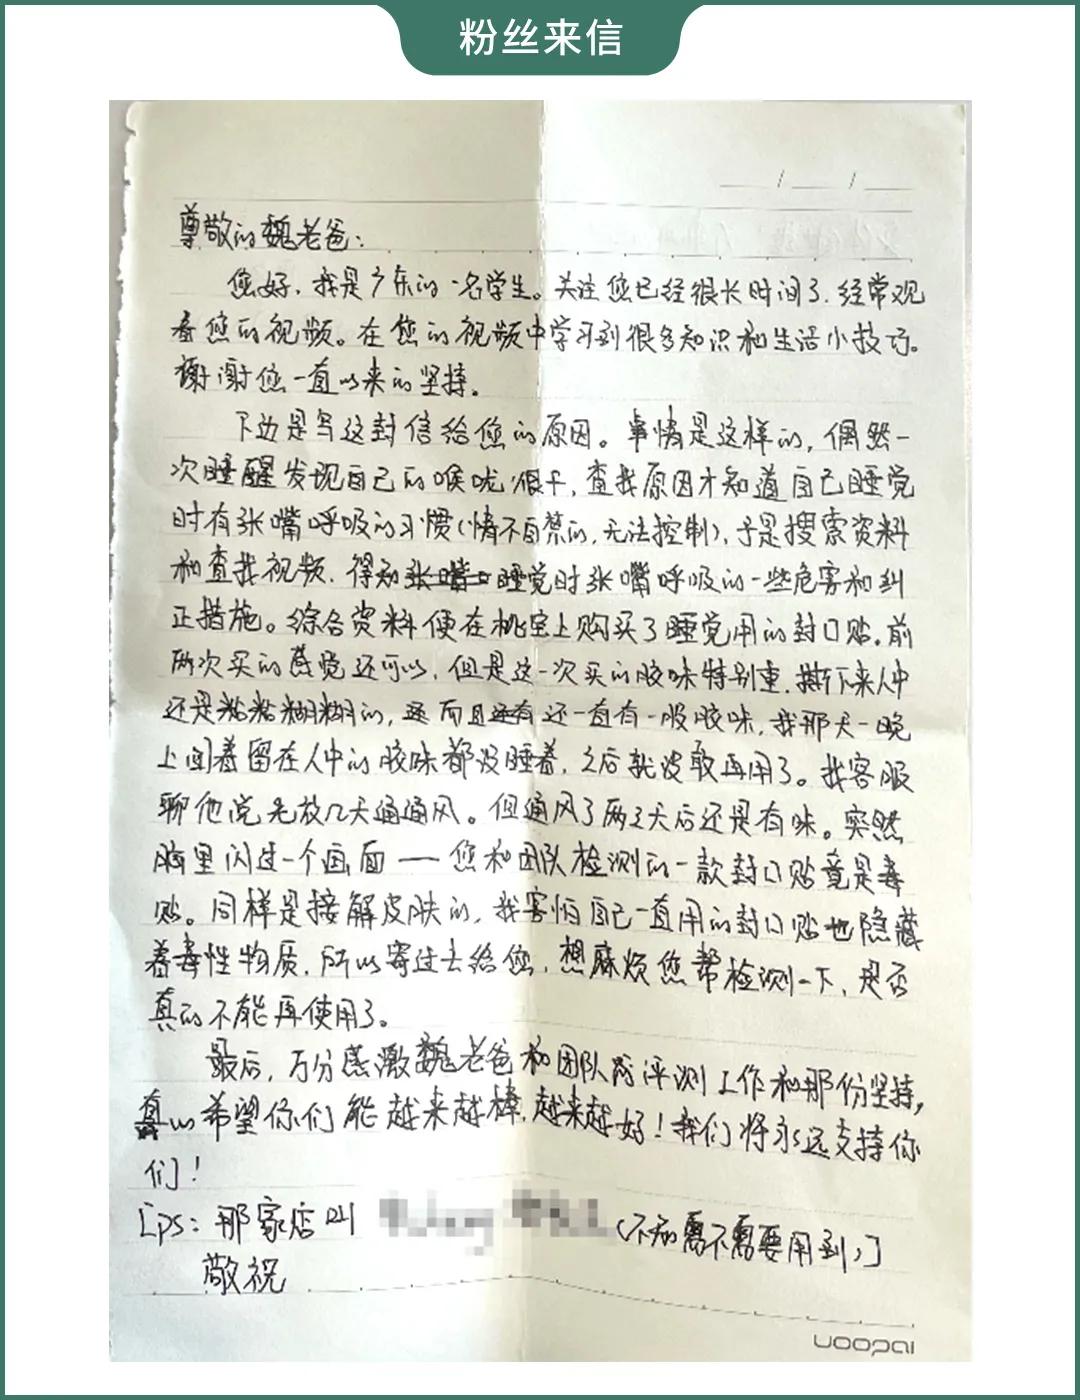 粉丝来信
尊敬的魏老爸：
您好，我是广东的一名学生。关注您已经很长时间了，经常观
看您的视频。在您的视频中学习到很多知识和生活小技巧。
谢谢您一直以来的坚持。
下边是写这封信给您的原因。事情是这样的，偶然一
次睡醒发现自己的喉咙很干，查找原因才知道自己睡觉
时有张嘴呼吸的习惯（情不自禁的，无法控制），于是搜索资料
和查找视频，得知睡觉时张嘴呼吸的一些危害和纠
正措施。综合资料便在桃宝上购买了睡觉用的封口贴。前
两次买的感觉还可以，但是这一次买的胶味特别重，撕下来人中
还是粘粘糊糊的，而且还一直有一股胶味，我那天一晚
上闻着留在人中的胶味都没睡着，之后就没敢再用了。找客服
聊他说先放几天通通风。但通风了两三天后还是有味。突然
脑里闪过一个画面——您和团队检测的一款封口贴竟是毒
贴。同样是接触皮肤的，我害怕自己一直用的封口贴也隐藏
着毒性物质，所以寄过去给您，想麻烦您帮检测一下，是否
真的不能再使用了。
最后，万分感激魏老爸和团队的评测工作和那份坚持，
真心希望你们能越来越棒，越来越好！我们将永远支持你
们！
[ps：那家店叫 （不知需不需要用到，）]
敬祝
uoopai